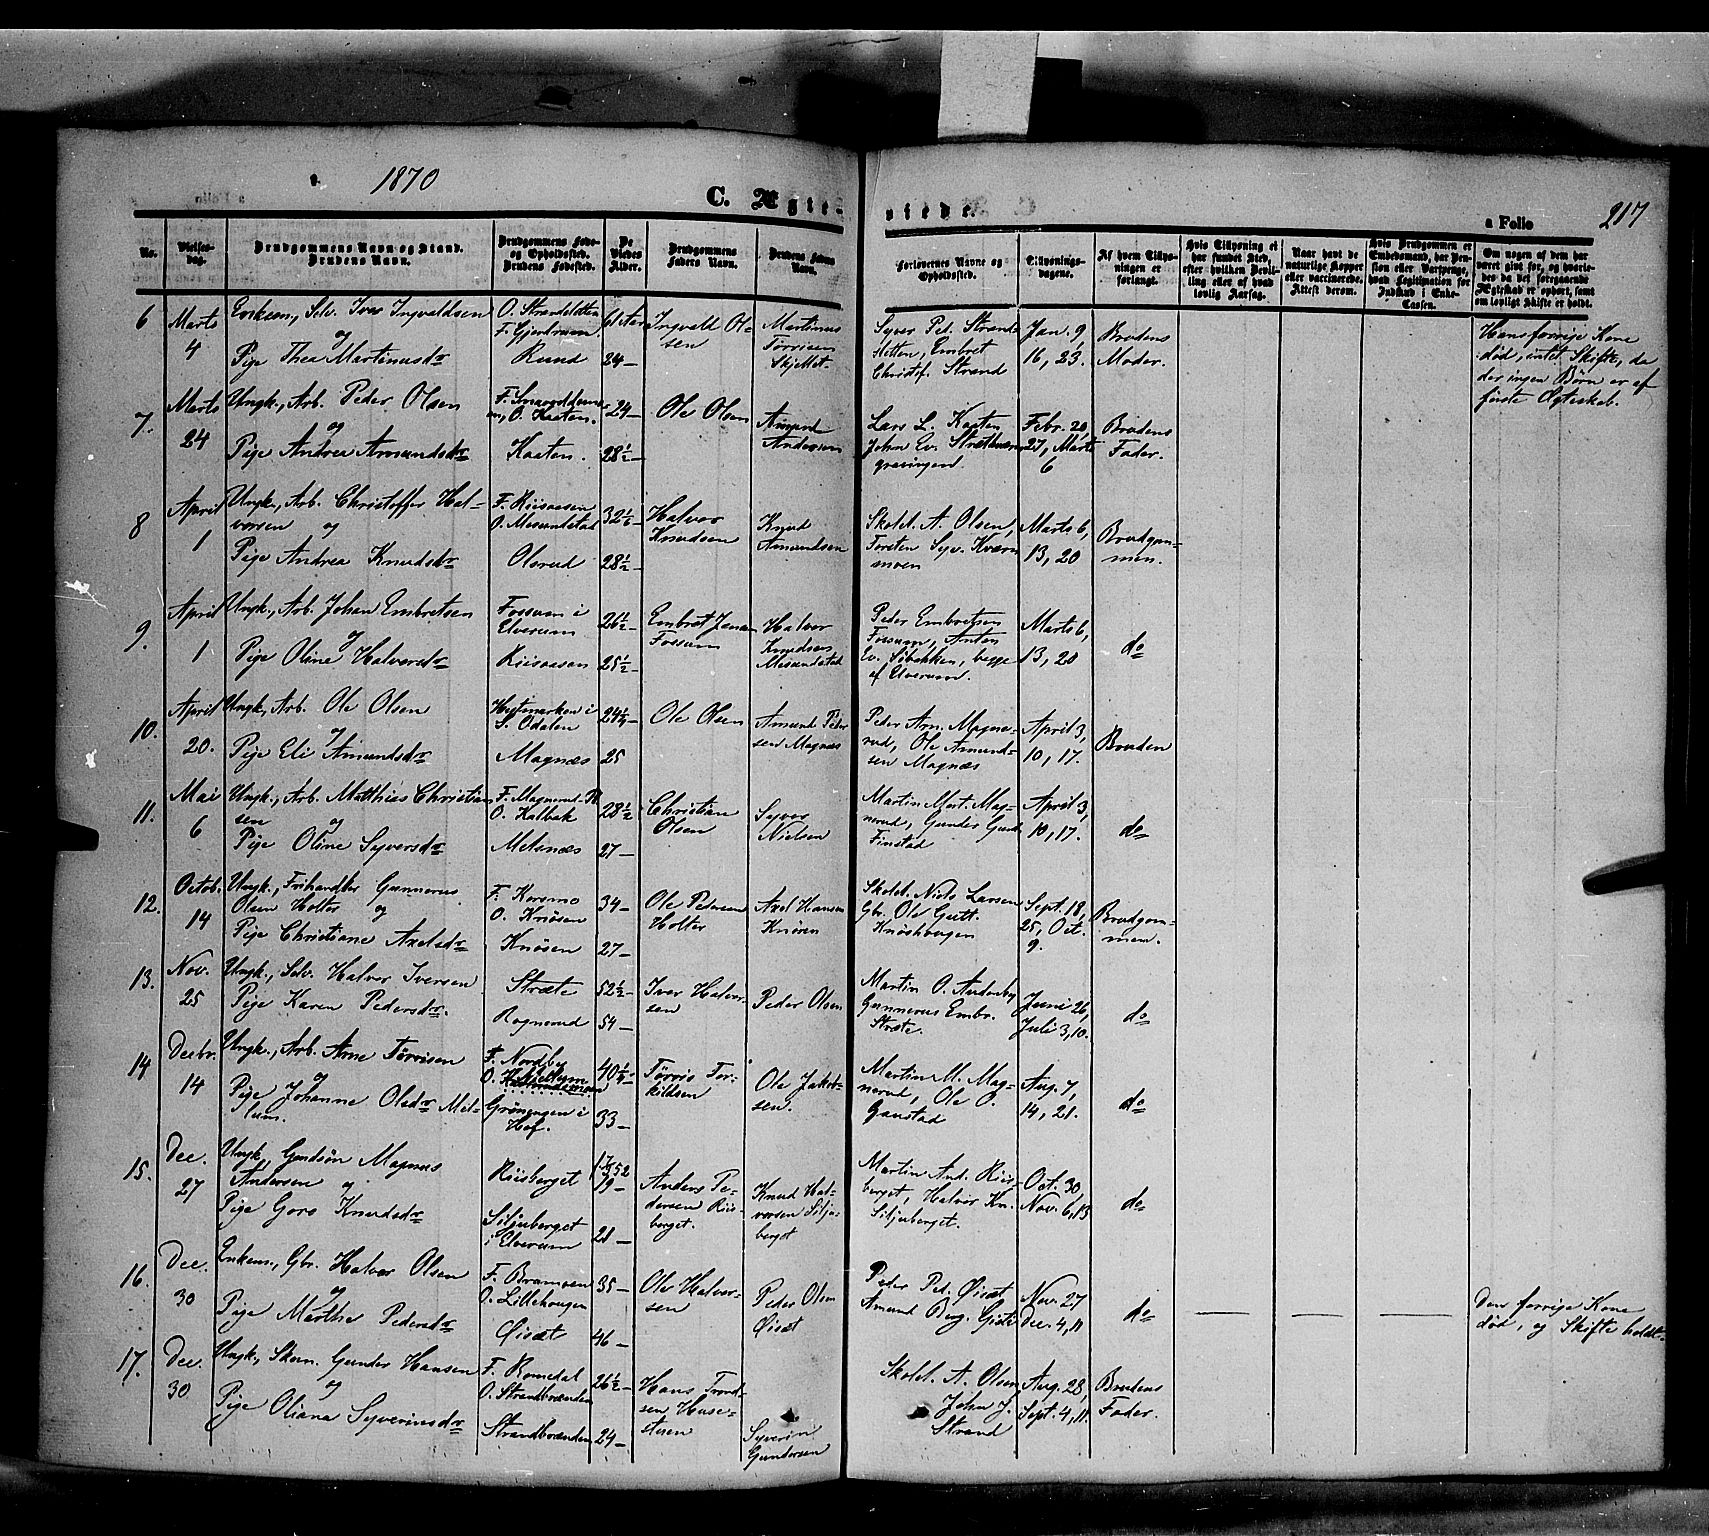 1870
C. Ægte-
viede.
a Folio
217
No.
Vielses-
dag.
Brudgommens Navn og Stand.
Brudens Navn.
Brudgommens Føde-
og Opholdssted.
Brudens Fødested.
De
Viedes
Alder.
Brudgommens
Faders Navn.
Brudens Faders
Navn.
Forlovernes Navne og
Opholdssted.
Tillysnings-
dagene.
Af hvem Tillys-
ningen er
forlangt.
Hvis Tillysning ei
har fundet Sted,
efter hvilken Bevil-
ling eller af hvad
lovlig Aarsag.
Naar havt de
naturlige Kopper
eller vaccinerede.
Attest derom.
Hvis Brudgommen er
Embedsmand, har Pen-
sion eller Vartpenge,
hvad Legitimation for
Indskud i Enke-
Cassen.
Om nogen af dem har
været gift før, og hvorle-
des da det foregaaende
Ægteskab er ophørt, samt
om lovligt Skifte er holdt.
6
Marts
4
Enkem., Selv. Iver Ingvaldsen
og
Pige Thea Martinusdr
O. Strandsletten
F. Gjerdrum
Rund
61 Aar
24 –
Ingvald Ol-
sen
Martinus
Tørrisen
Skjellet
Syver Ped. Strand-
sletten, Embret
Christof. Strand
Jan. 9,
16, 23.
Brudens
Moder.
Hans forrige Kone
død, intet Skifte, da
der ingen Børn er af
første Ægteskab.
7.
Marts
24
Ungk., Arb. Peder Olsen
og
Pige Andrea Amundsdr
O. Kaaten.
Kaaten.
24 –
28½ –
Ole Olsen
Amund
Andersen
Lars L. Kaaten
John Ev.
Febr. 20,
27, Marts
6
Brudens
Fader.
8
April
1
Ungk., Arb. Christoffer Hal-
vorsen og
Pige Andrea Knudsdr
F. Riisaasen
O. Mesundstad
Olsrud
32½ –
28½ –
Halvor
Knudsen
Knud
Amundsen
Skolel. A. Olsen,
Torsten Syv. Kværn-
moen
Marts 6,
13, 20
Brudgom-
men.
9.
April
1
Ungk., Arb. Johan Embretsen
og
Pige Oline Halvorsdr
Fossum i
Elverum
Riisaasen
26½ –
25½ –
Embret Jonsen
Fossum
Halvor
Knudsen
Mesundstad
Peder Embretsen
Fossum, Anton
Ev. Sibekken, begge
af Elverum.
Marts 6,
13, 20
do
10.
April
20.
Ungk., Arb. Ole Olsen
og
Pige Eli Amundsdr
S. Odalen
Magnæs
24½ –
25
Ole Olsen
Amund Peder-
sen Magnæs
Peder Am. Magne-
rud, Ole Amund-
sen Magnæs
April 3,
10, 17.
Bruden
11.
Mai
6
Ungk., Arb. Matthias Christian-
sen og
Pige Oline Syversdr
F. Magnerud
O. Kalbak
Melsnæs
28½ –
27 –
Christian
Olsen
Syver
Nielsen
Martin Mort. Mag-
nerud, Gunder Gund.
Finstad
April 3,
10, 17.
do
12.
Octob.
14
Ungk., Frihandler Gunnerus
Olsen Holter og
Pige Christiane Axelsdr
F. Korsmo
O. Knøsen
Knøsen
34 –
27 –
Ole Pedersen
Holter
Axel Hansen
Knøsen
Skolel. Niels Larsen
Gbr. Ole Gutt.
Knøshougen
Sept. 18,
25, Oct.
9.
Brudgom-
men.
13.
Nov.
25
Ungk., Selv. Halvor Iversen
Pige Karen Pedersdr.
Stræte
Rognerud
52½ –
54 –
Iver Halvor-
sen
Peder Olsen
Martin O. Anderby
Gunnerus Embr.
Stræte.
Juni 26,
Juli 3, 10.
do
14
Decbr.
14
Ungk., Arb. Arne Tørrisen
og
Pige Johanne Olsdr Mel-
lum.
F. Nordby
O.
Grønengen i
Hof.
40½ –
33 –
Tørris Tor-
kildsen
Ole Jakob-
sen.
Martin M. Mag-
nerud, Ole O.
Gaustad
Aug. 7,
14, 21.
do
15.
Dec.
27
Ungk., Gaardsøn Magnus
Andersen og
Pige Goro Knudsdr
Riisberget
Siljuberget
i Elverum
19 –
21 –
Anders Pe-
dersen Riis-
berget.
Knud Hal-
vorsen Silju-
berget
Martin And. Riis-
berget, Halvor Kn.
Siljuberget.
Oct. 30
Nov. 6, 13
do
16.
Dec.
30
Enkem., Gbr. Halvor Olsen
og
Pige Marthe Pedersdr
F. Bramoen
O. Lillehougen
Øisæt
35 –
46 –
Ole Halvor-
sen
Peder Olsen
Øisæt
Peder Ped. Øisæt
Amund Berg.
Nov. 27
Dec. 4, 11
do
Den forrige Kone
død, og Skifte holdt.
17.
Dec.
30
Ungk., Skom. Gunder Hansen
og
Pige Oliana Syverinsdr
F. Romedal
O. Strandbrænden
Strandbrænden
26½ –
24 –
Hans Trond-
sen Huse-
stuen
Syverin
Gundersen
Skolel. A. Olsen,
John J.
Strand
Aug. 28,
Sept. 4, 11.
Brudens
Fader.